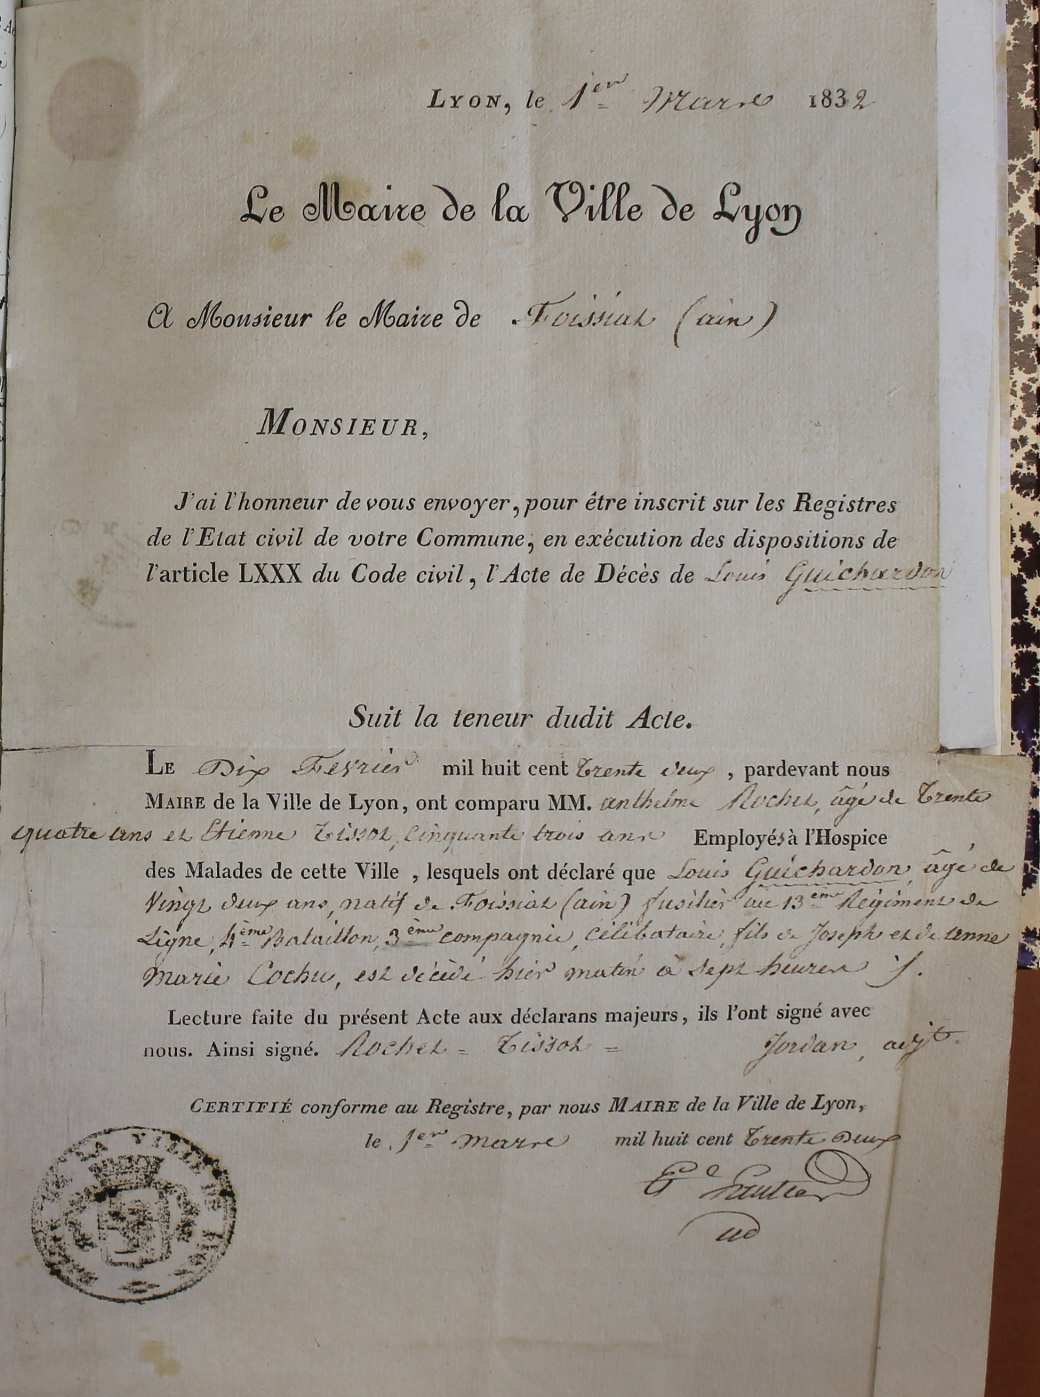 LYON, le 1er Mars 1832
Le Maire de la Ville de Lyon
A Monsieur le Maire de Foissiat (ain)
MONSIEUR,
J'ai l'honneur de vous envoyer, pour être inscrit sur les Registres
de l'Etat civil de votre Commune, en exécution des dispositions de
l'article LXXX du Code civil, l'Acte de Décès de Louis Guichardon
Suit la teneur dudit Acte.
LE Dix Fevrier mil huit cent trente deux, pardevant nous
MAIRE de la Ville de Lyon, ont comparu MM. anthelme Rochet, âgé de Trente
quatre ans et Etienne Tissot, cinquante trois ans Employés à l'Hospice
des Malades de cette Ville, lesquels ont déclaré que Louis Guichardon, âgé de
Vingt deux ans, natif de Foissiat (ain) fusilier au 13eme Régiment de
Ligne, 4eme Bataillon, 3eme compagnie, célibataire, fils de Joseph et de anne
marie Cochu, est décédé hier matin à sept heures
Lecture faite du présent Acte aux déclarans majeurs, ils l'ont signé avec
nous. Ainsi signé. Rochet = Tissot = Jordan, adjt.
CERTIFIÉ conforme au Registre, par nous MAIRE de la Ville de Lyon,
le 1er mars mil huit cent trente Deux
LA VILLE DE